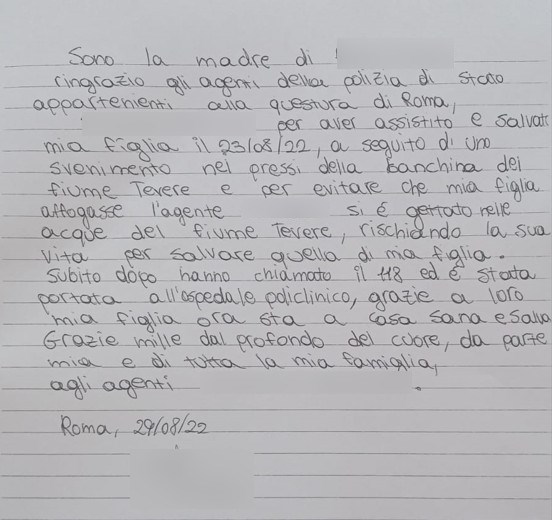 Sono la madre di
ringrazio gli agenti della polizia di stato
appartenenti alla questura di Roma,
per aver assistito e salvato
mia figlia il 23/08/22, a seguito di uno
svenimento nel pressi della banchina del
fiume Tevere e per evitare che mia figlia
affogasse l'agente si é gettato nelle
acque del fiume Tevere, rischiando la sua
vita per salvare quella di mia figlia.
Subito dopo hanno chiamato il 118 ed é stata
portata all'ospedale policlinico, grazie a loro
mia figlia ora sta a casa sana e salva
Grazie mille dal profondo del cuore, da parte
mia e di tutta la mia famiglia,
agli agenti
Roma, 29/08/22